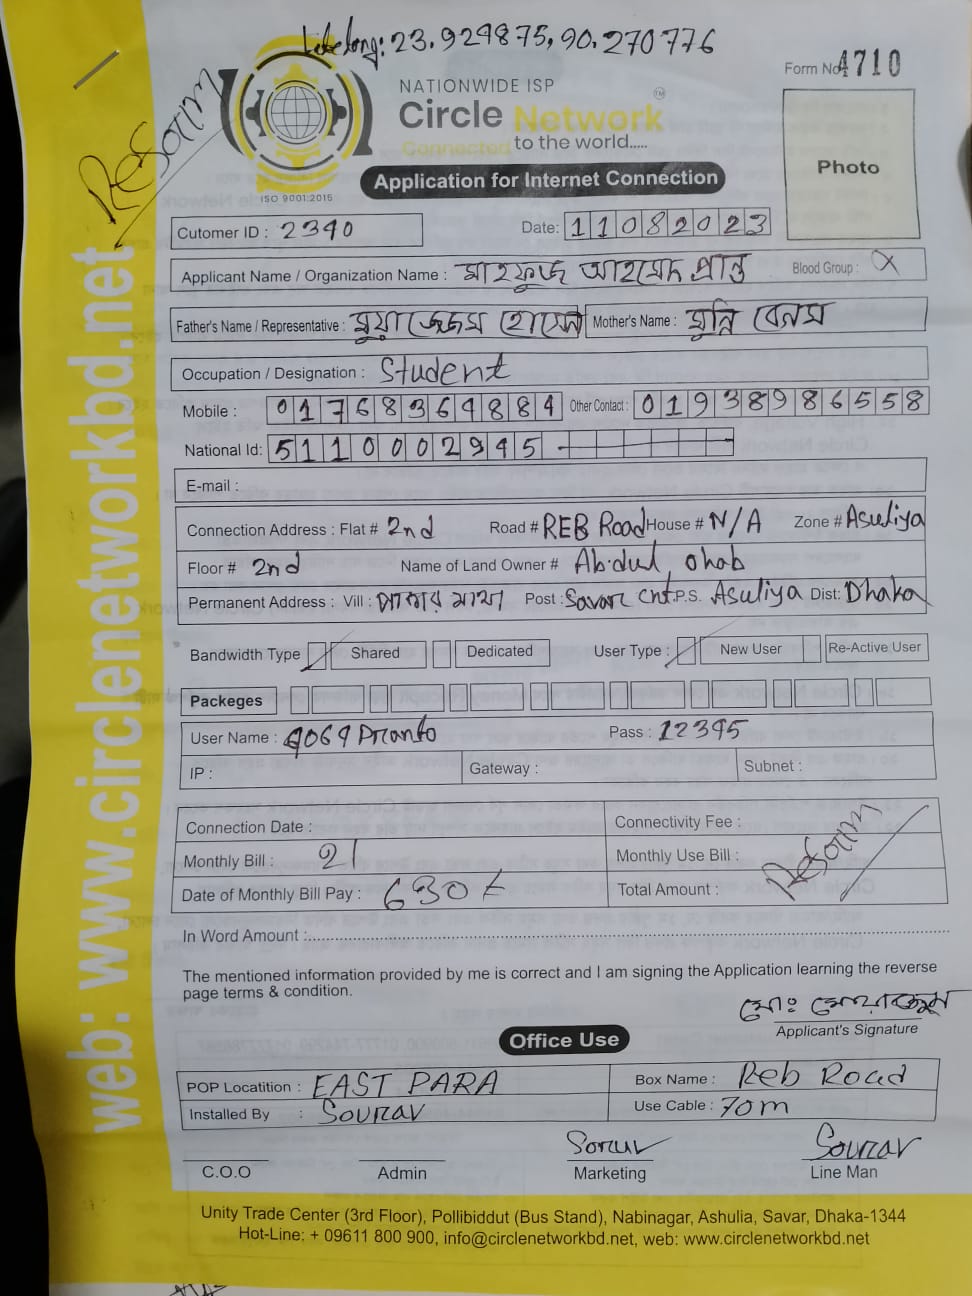 Late long: 23.929875, 90.270776
Form No 4710
Resom
NATIONWIDE ISP
Circle Network
Connected to the world.....
ISO 9001:2015
Application for Internet Connection
Photo
Cutomer ID : 2340
Date: 11082023
Applicant Name / Organization Name : মাহফুজ আহমেদ প্রান্ত Blood Group : X
Father's Name / Representative : মুয়াজ্জেম হোসেন Mother's Name : মুন্নি বেগম
Occupation / Designation : Student
Mobile : 01768364884 Other Contact : 01938986558
National Id: 5110002945
E-mail :
Connection Address : Flat # 2nd Road # REB Road House # N/A Zone # Asuliya
Floor # 2nd Name of Land Owner # Abdul ohab
Permanent Address : Vill : Post : Savar Cnt. P.S. Asuliya Dist: Dhaka
Bandwidth Type Shared Dedicated User Type : New User Re-Active User
Packeges
User Name : 4069Pranto Pass : 12345
IP : Gateway : Subnet :
Connection Date : Connectivity Fee :
Monthly Bill : 21 Monthly Use Bill :
Date of Monthly Bill Pay : 630 Total Amount :
Resom
In Word Amount :
The mentioned information provided by me is correct and I am signing the Application learning the reverse
page terms & condition.
মোঃ
Applicant's Signature
Office Use
POP Locatition : EAST PARA Box Name : Reb Road
Installed By : Sourav Use Cable : 70m
Sorav Sourav
C.O.O Admin Marketing Line Man
Unity Trade Center (3rd Floor), Pollibiddut (Bus Stand), Nabinagar, Ashulia, Savar, Dhaka-1344
Hot-Line: + 09611 800 900, info@circlenetworkbd.net, web: www.circlenetworkbd.net
web: www.circlenetworkbd.net